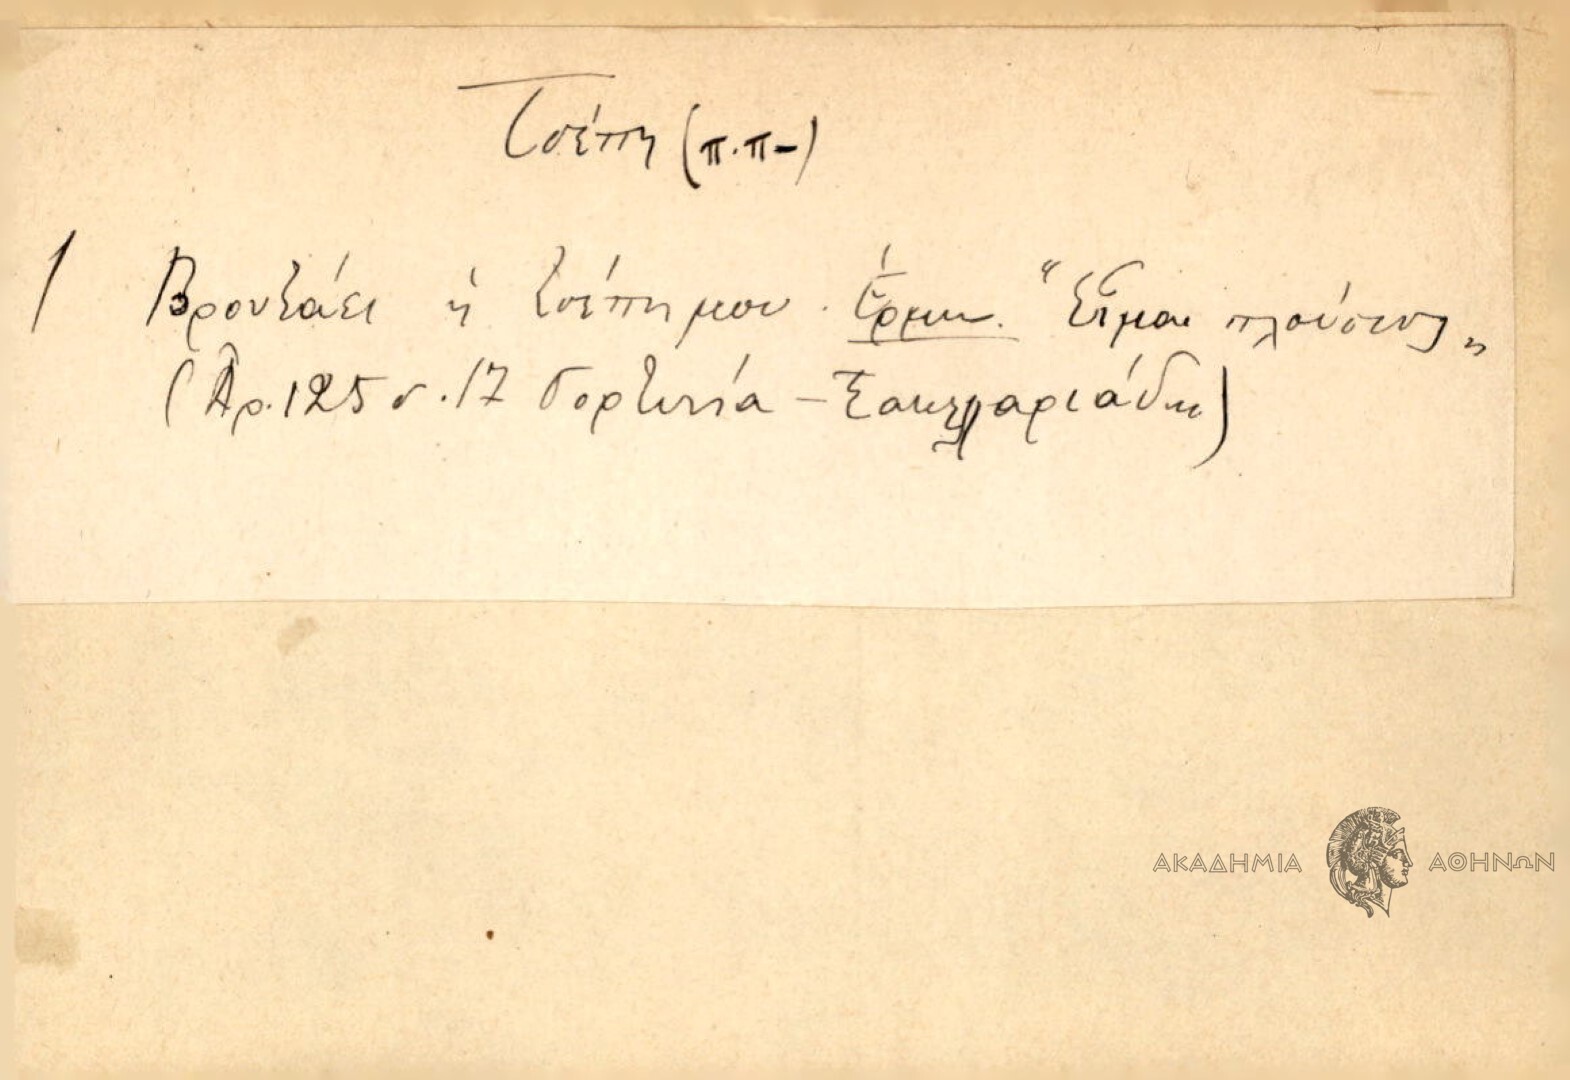 Τσέπη (π.π-)
1 Βρουτάει ἡ τσέπη μου. Ἑρμην. "Εἶμαι πλούσιος„
(Ἀρ. 125 σ. 17 Γορτυνία - Σακελλαριάδη)
ΑΚΑΔΗΜΙΑ ΑΘΗΝΩΝ